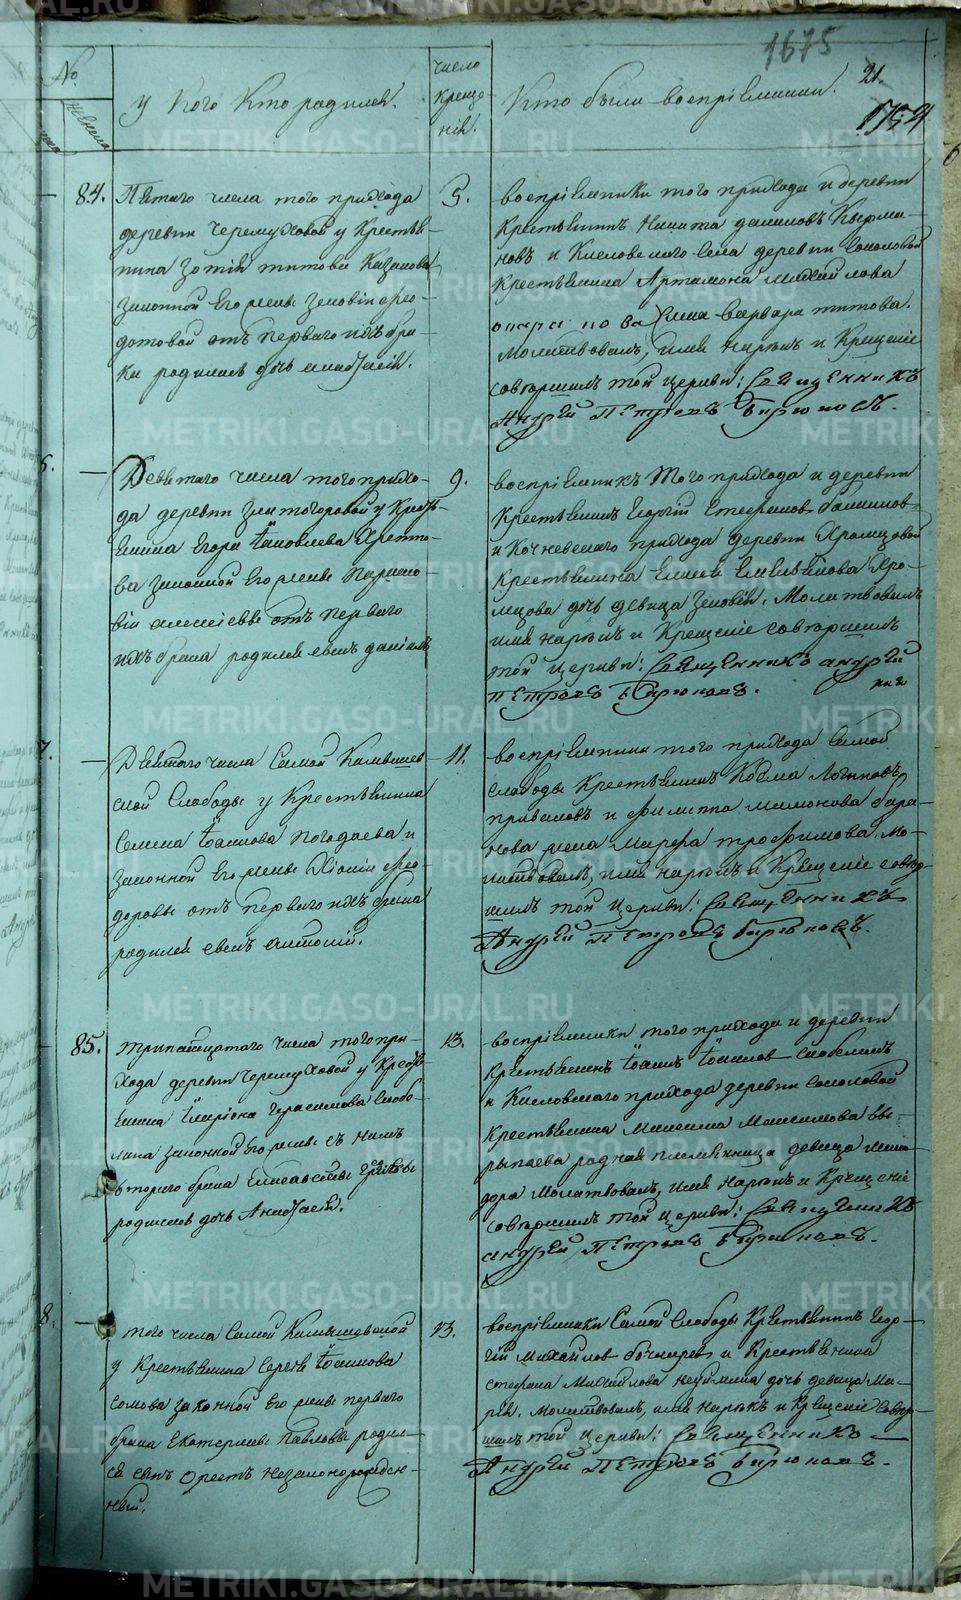 1675
№
у кого кто родился.
число
креще
нія.
Кто были воспріемники.
21.
женска
84.
Пятаго числа того прихода
деревни Черемуховой у крестья
нина Зотія Титова Казакова
законной его жены Зеновіи Фео-
дотовой отъ перваго ихъ бра-
ка родилась дочь Анастасія.
5.
воспріемники того прихода и деревни
крестьянинъ Никита
новъ и Кисловскаго села деревни Соколовой
крестьянина Артамона Михайлова
Варвара Титова.
молитвовалъ, имя нарекъ и крещеніе
совершилъ той церкви: Священникъ
Андрей Петровъ Бирюковъ.
Девятаго числа того прихо-
да деревни Златогоровой у кресть-
янина Егора Іаковлева
ва законной его жены Параско-
віи Алексіевы отъ перваго
ихъ брака родился сынъ Даніилъ
9.
воспріемникъ того прихода и деревни
крестьянинъ Георгій Стефановъ
и Кочневскаго прихода деревни Храмцовой
крестьянина Елисея Емельянова Хра-
мцова дочь девица Зеновія. Молитвовалъ
имя нарекъ и крещеніе совершилъ
той церкви: Священникъ Андрей
Петровъ Бирюковъ.
Девятаго числа Самой Камышев
ской Слободы у крестьянина
Семена Іоаннова Погодаева и
законной его жены Ѳео-
доровы отъ перваго ихъ брака
родился сынъ Антоній.
11.
воспріемники того прихода Самой
слободы крестьянинъ Козма Логиновъ
Приваловъ и Филиппа Мамонова Бара-
нова жена Марфа Трофимова. Мо-
литвовалъ, имя нарекъ и крещеніе совер
шилъ той церкви: Священникъ
Андрей Петровъ Бирюковъ.
85.
тринатцатаго числа того при-
хода деревни Черемуховой у кресть
янина Иларіона Герасимова Скобе-
лина законной его жены съ нимъ
втораго брака Елисаветы
родилась дочь Анастасія.
13.
воспріемники того прихода и деревни
крестьянинъ Іоаннъ Іоанновъ Скобелинъ
и Кисловскаго прихода деревни Соколовой
крестьянина Максима Максимова Вы-
рыпаева родная племянница девица
дора молитвовалъ, имя нарекъ и крещеніе
совершилъ той церкви: Священникъ
Андрей Петровъ Бирюковъ.
того числа Самой Камышевской
у крестьянина Сергея Іоаннова
Сомова законной его жены перваго
брака Екатерины Павловы родил-
ся сынъ Орестъ незаконорожден-
ный.
13.
воспріемники Самой Слободы крестьянинъ Геор-
гій Михайловъ и крестьянина
Стефана Михайлова дочь девица Ма-
рія. молитвовалъ, имя нарекъ и крещеніе совер-
шилъ той церкви: Священникъ
Андрей Петровъ Бирюковъ.